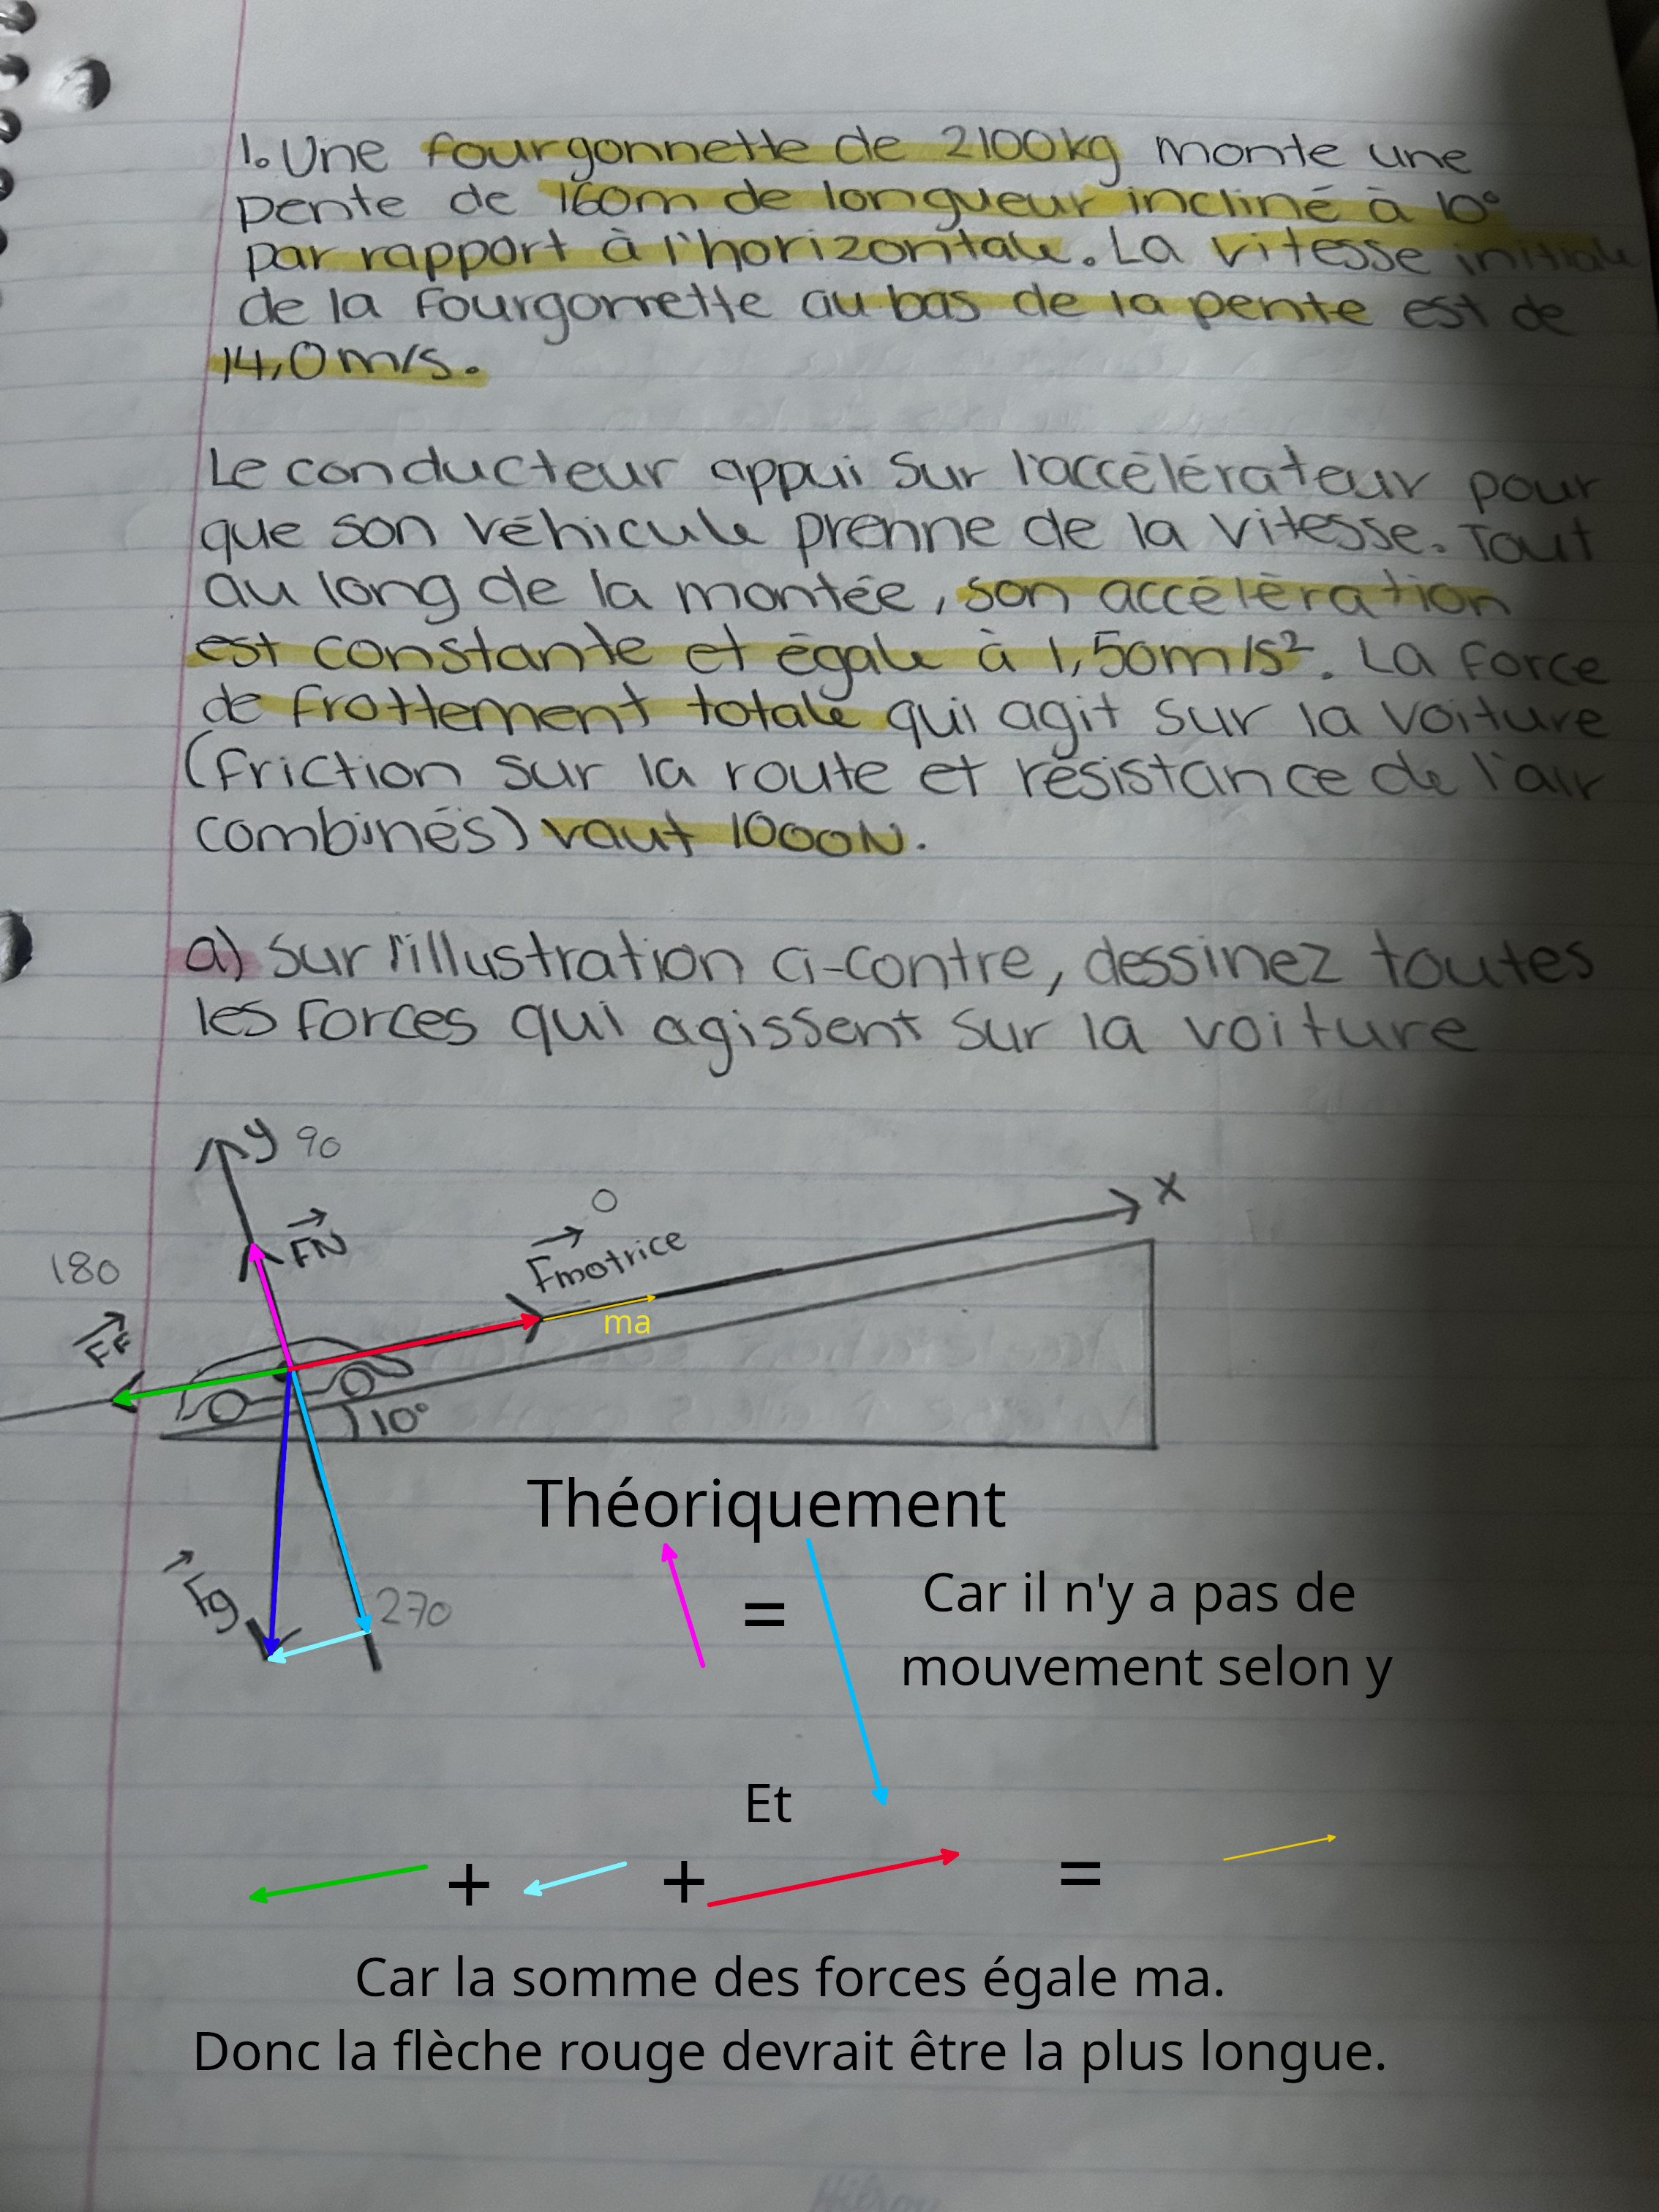 1. Une fourgonnette de 2100kg monte une
pente de 160m de longueur incliné à 10°
par rapport à l'horizontale. La vitesse initiale
de la fourgonnette au bas de la pente est de
14,0 m/s.
Le conducteur appui sur l'accélérateur pour
que son véhicule prenne de la vitesse. Tout
au long de la montée, son accélération
est constante et égale à 1,50m/s². La force
de frottement totale qui agit sur la voiture
(friction sur la route et résistance de l'air
combinés) vaut 1000N.
a) Sur l'illustration ci-contre, dessinez toutes
les forces qui agissent sur la voiture
y 90
x
0
FN
Fmotrice
180
ma
FF
10°
Théoriquement
Fg
270
=
Car il n'y a pas de
mouvement selon y
Et
+ + =
Car la somme des forces égale ma.
Donc la flèche rouge devrait être la plus longue.